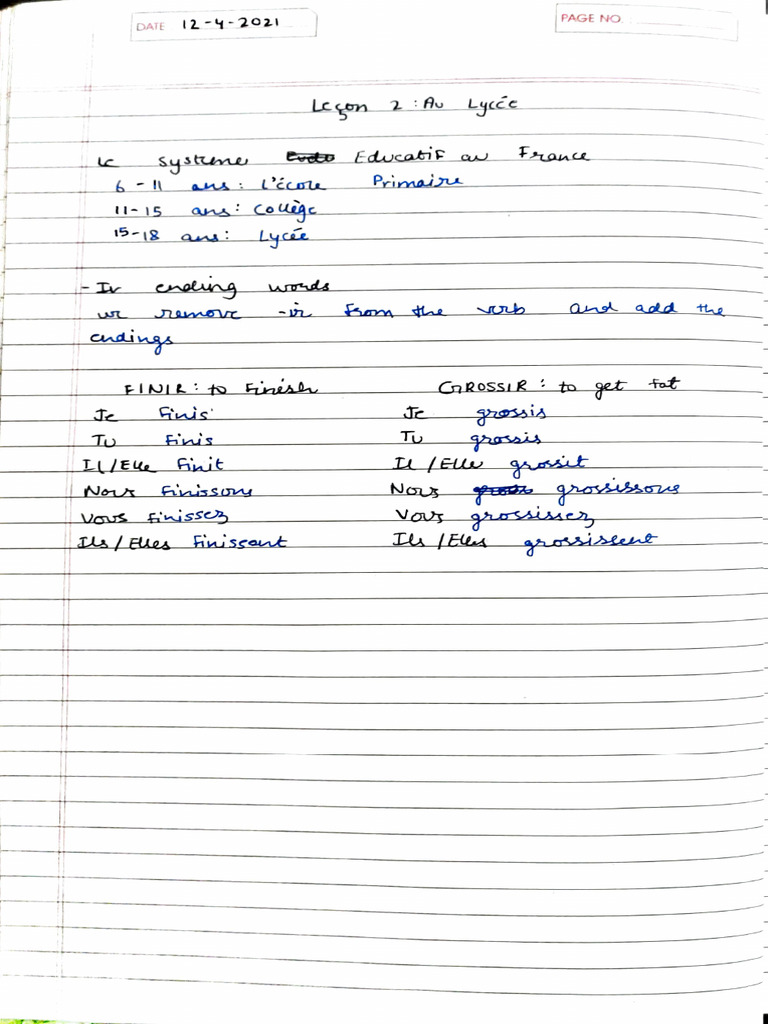 DATE 12-4-2021
PAGE NO.
Leçon 2 : Au Lycée
Le système Educatif au France
6 - 11 ans : L'école Primaire
11-15 ans : Collège
15-18 ans : Lycée
- Ir ending words
we remove -ir from the verb and add the
endings
FINIR : to Finish GROSSIR : to get fat
Je Finis Je grossis
Tu Finis Tu grossis
Il/Elle Finit Il/Elle grossit
Nous Finissons Nous grossissons
Vous Finissez Vous grossissez
Ils/Elles Finissent Ils/Elles grossissent